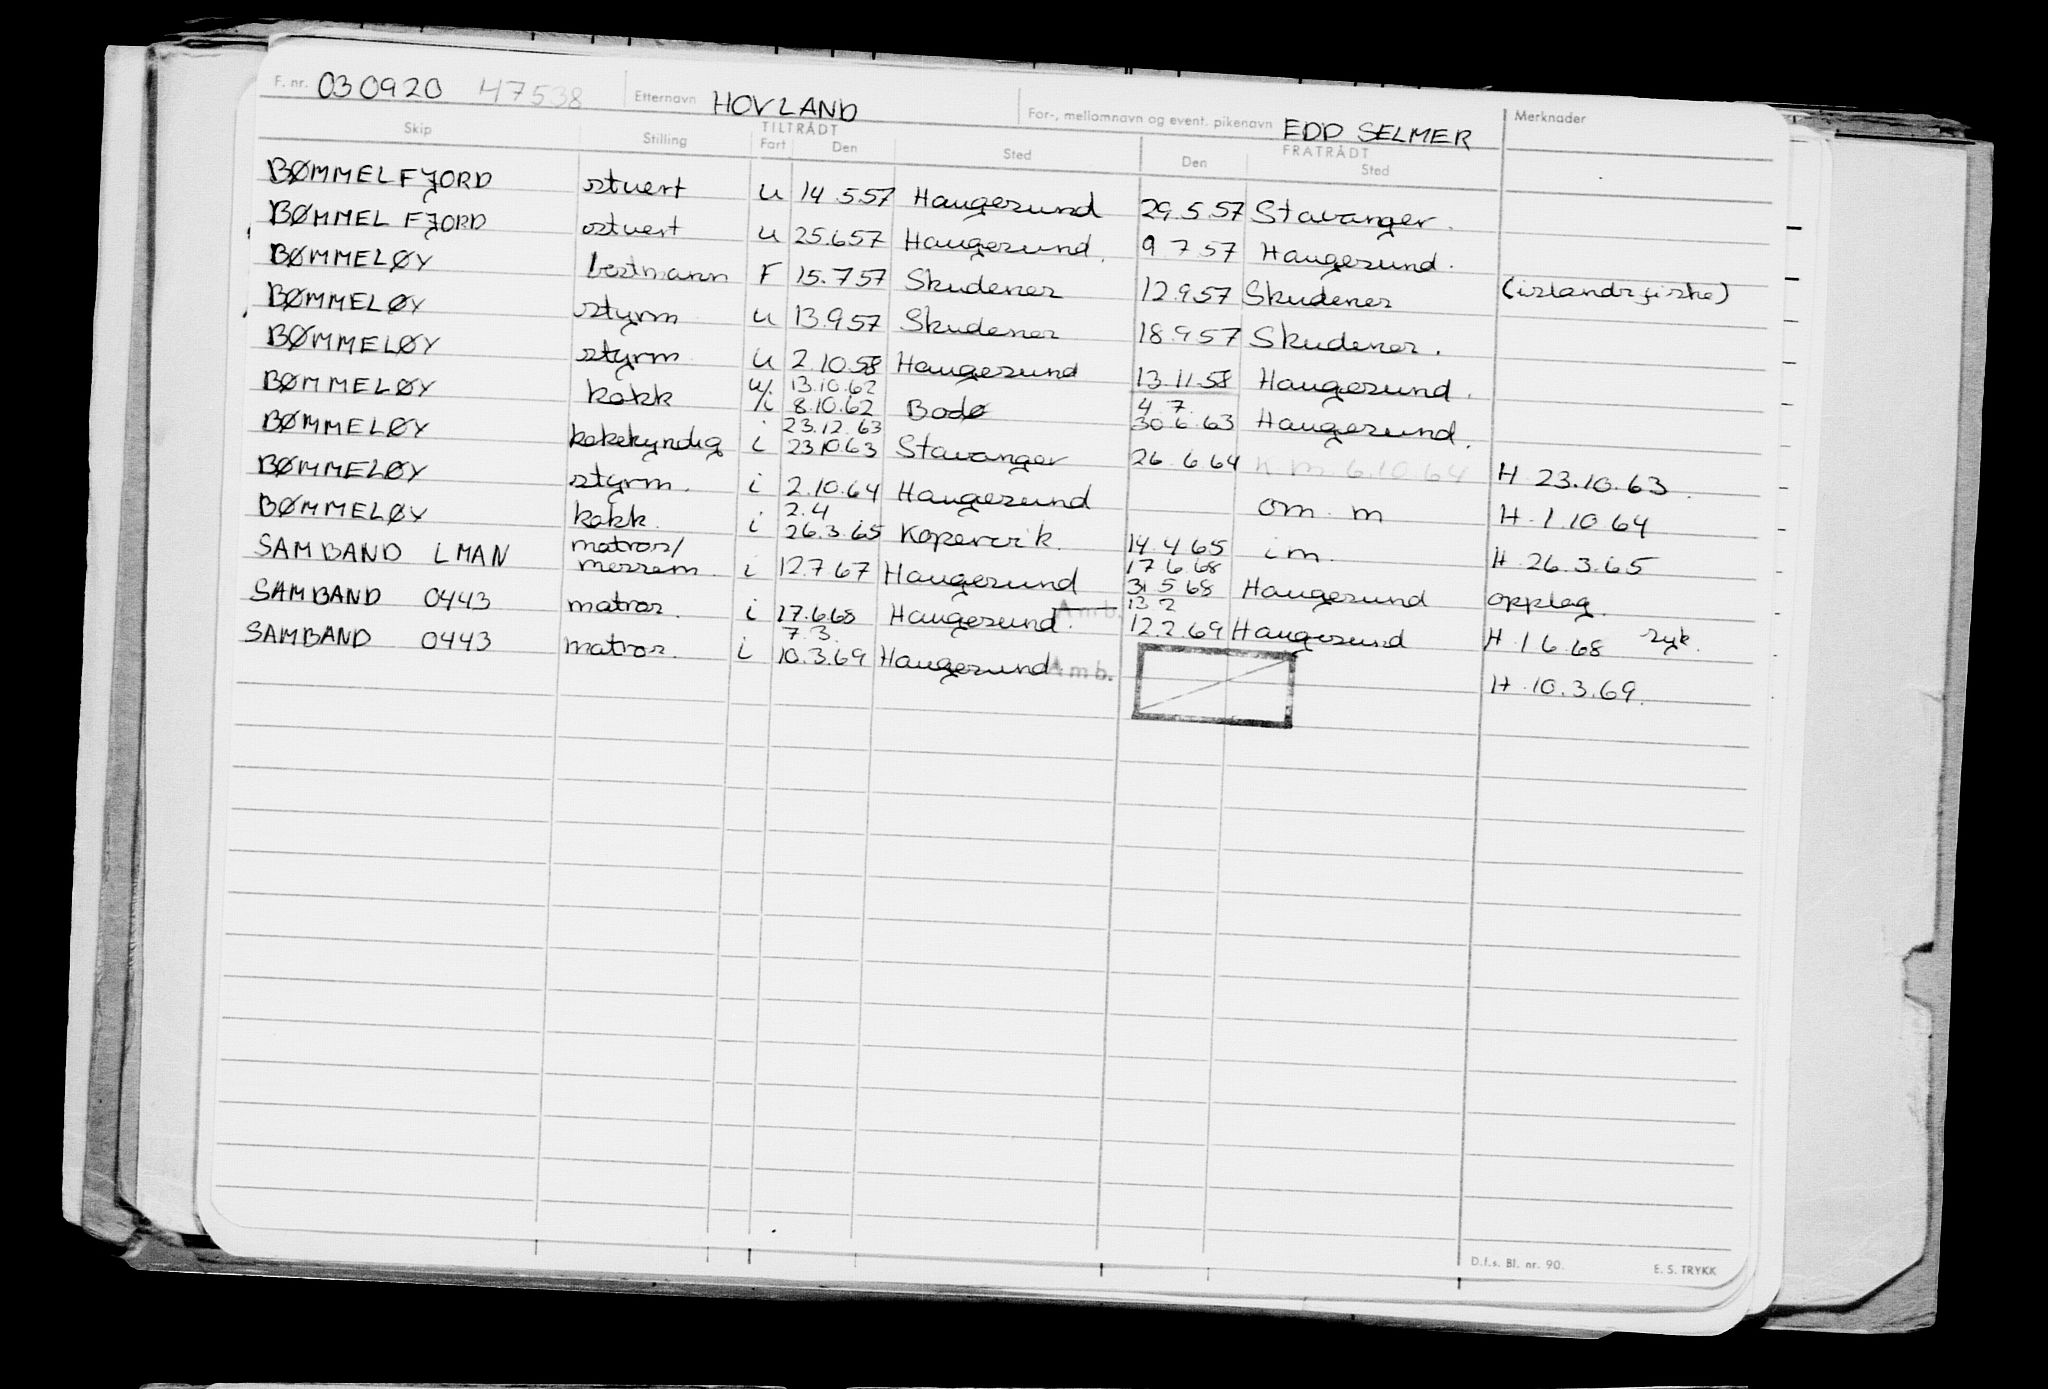 F. nr. 030920 47538 Etternavn HOVLAND For-, mellomnavn og event. pikenavn EDD SELMER Merknader
TILTRÅDT FRATRÅDT
Skip Stilling Fart Den Sted Den Sted
BØMMELFJORD stuert u 14 5.57 Haugesund 29.5.57 Stavanger.
BØMMEL FJORD stuert u 25.6.57 Haugesund. 9 7 57 Haugesund.
BØMMELØY bestmann F 15.7 57 Skudenes 12.9.57 Skudenes (islandsfiske)
BØMMELØY styrm u 13.9.57 Skudenes 18.9.57 Skudenes.
BØMMELØY styrm u 2.10.58 Haugesund 13.11.58 Haugesund.
13.10.62 4. 7.
BØMMELØY kokk u/i 8.10.62 Bodø 30 6.63 Haugesund.
23.12.63
BØMMELØY kokekyndig i 23.10.63 Stavanger 26.6.64 K m. 6.10.64 H 23.10.63.
BØMMELØY styrm. i 2.10.64 Haugesund om. m H. 1.10 64
2.4
BØMMELØY kokk. i 26.3.65 Kopervik. 14.4.65 i m. H. 26.3.65
17.6.68
SAMBAND LMAN matros/ messem. i 12.7 67 Haugesund 31.5 68 Haugesund opplag.
13 2
SAMBAND 0443 matros. i 17.6.68 Haugesund. Amb. 12.2.69 Haugesund H. 1 6.68 syk.
7.3.
SAMBAND 0443 matros. i 10.3.69 Haugesund Amb. H. 10.3.69.
D.f.s. Bl. nr. 90. E. S. TRYKK